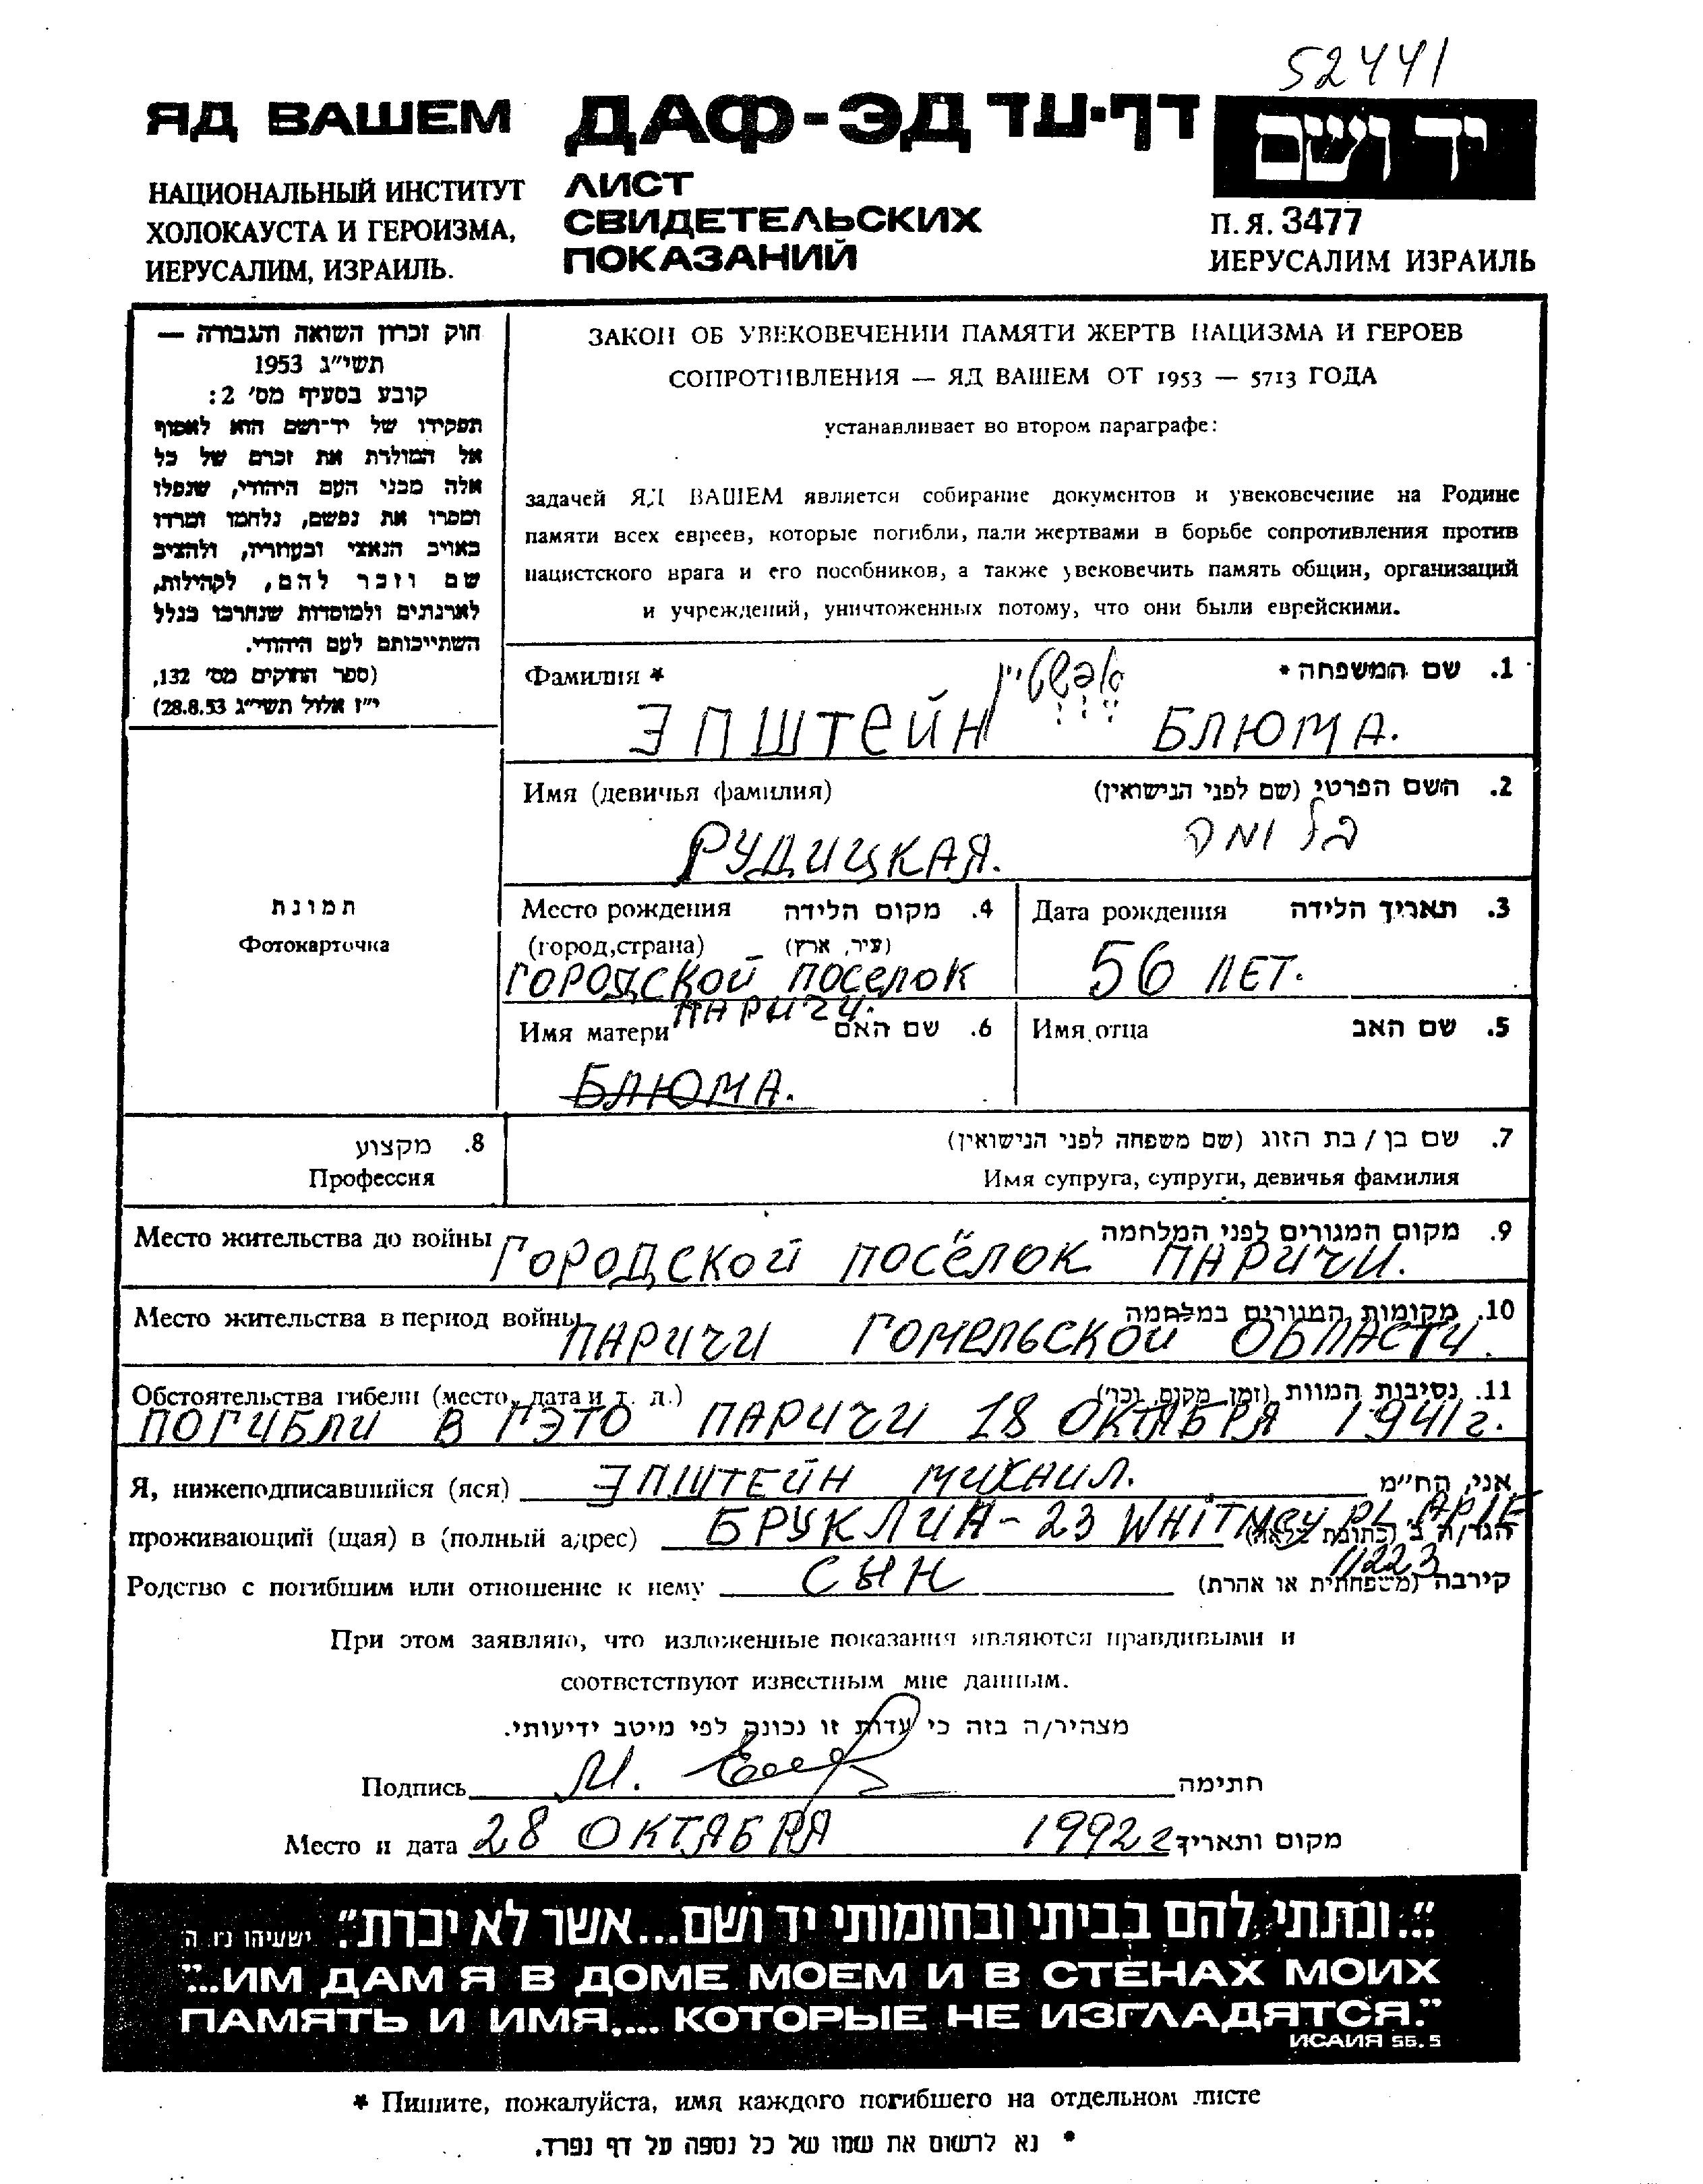 52441
ЯД ВАШЕМ
ДАФ-ЭД דף-עד
יד ושם
НАЦИОНАЛЬНЫЙ ИНСТИТУТ
ХОЛОКАУСТА И ГЕРОИЗМА,
ИЕРУСАЛИМ, ИЗРАИЛЬ.
ЛИСТ
СВИДЕТЕЛЬСКИХ
ПОКАЗАНИЙ
П.Я. 3477
ИЕРУСАЛИМ ИЗРАИЛЬ
חוק זכרון השואה והגבורה —
תשי״ג 1953
קובע בסעיף מס׳ 2:
תפקידו של יד־ושם הוא לאסוף
אל המולדת את זכרם של כל
אלה מבני העם היהודי, שנפלו
ומסרו את נפשם, נלחמו ומרדו
באויב הנאצי ובעוזריו, ולהציב
שם וזכר להם, לקהילות,
לארגונים ולמוסדות שנחרבו בגלל
השתייכותם לעם היהודי.
(ספר החוקים מס׳ 132,
י״ז אלול תשי״ג 28.8.53)
ЗАКОН ОБ УВЕКОВЕЧЕНИИ ПАМЯТИ ЖЕРТВ НАЦИЗМА И ГЕРОЕВ
СОПРОТИВЛЕНИЯ — ЯД ВАШЕМ ОТ 1953 — 5713 ГОДА
устанавливает во втором параграфе:
задачей ЯД ВАШЕМ является собирание документов и увековечение на Родине
памяти всех евреев, которые погибли, пали жертвами в борьбе сопротивления против
нацистского врага и его пособников, а также увековечить память общин, организаций
и учреждений, уничтоженных потому, что они были еврейскими.
Фамилия *
1. שם המשפחה *
אפשטיין
ЭПШТЕЙН БЛЮМА.
Имя (девичья фамилия)
2. השם הפרטי (שם לפני הנישואין)
בלומה
РУДИЦКАЯ.
תמונת
Фотокарточка
Место рождения 4. מקום הלידה
(город,страна) (עיר, ארץ)
ГОРОДСКОЙ ПОСЕЛОК
ПАРИЧИ.
Дата рождения 3. תאריך הלידה
56 ЛЕТ.
Имя матери 6. שם האם
БЛЮМА.
Имя отца 5. שם האב
8. מקצוע
Профессия
7. שם בן / בת הזוג (שם משפחה לפני הנישואין)
Имя супруга, супруги, девичья фамилия
Место жительства до войны 9. מקום המגורים לפני המלחמה
ГОРОДСКОЙ ПОСЁЛОК ПАРИЧИ.
Место жительства в период войны 10. מקומות המגורים במלחמה
ПАРИЧИ ГОМЕЛЬСКОЙ ОБЛАСТИ.
Обстоятельства гибели (место, дата и т. д.) 11. נסיבות המוות (זמן, מקום, וכו׳)
ПОГИБЛИ В ГЭТО ПАРИЧИ 18 ОКТЯБРЯ 1941 г.
Я, нижеподписавшийся (яся) ЭПШТЕЙН МИХАИЛ. אני, הח״מ
проживающий (щая) в (полный адрес) БРУКЛИН - 23 WHITNEY PL. הגר/ה ב (כתובת מלאה)
11223
Родство с погибшим или отношение к нему СЫН קירבה (משפחתית או אחרת)
При этом заявляю, что изложенные показания являются правдивыми и
соответствуют известным мне данным.
מצהיר/ה בזה כי עדות זו נכונה לפי מיטב ידיעותי.
Подпись М. חתימה
Место и дата 28 ОКТЯБРЯ 1992 г מקום ותאריך
״...ונתתי להם בביתי ובחומותי יד ושם...אשר לא יכרת״. ישעיהו נו ה
"...ИМ ДАМ Я В ДОМЕ МОЕМ И В СТЕНАХ МОИХ
ПАМЯТЬ И ИМЯ.... КОТОРЫЕ НЕ ИЗГЛАДЯТСЯ."
ИСАИЯ 56.5
* Пишите, пожалуйста, имя каждого погибшего на отдельном листе
* נא לרשום את שמו של כל נספה על דף נפרד.